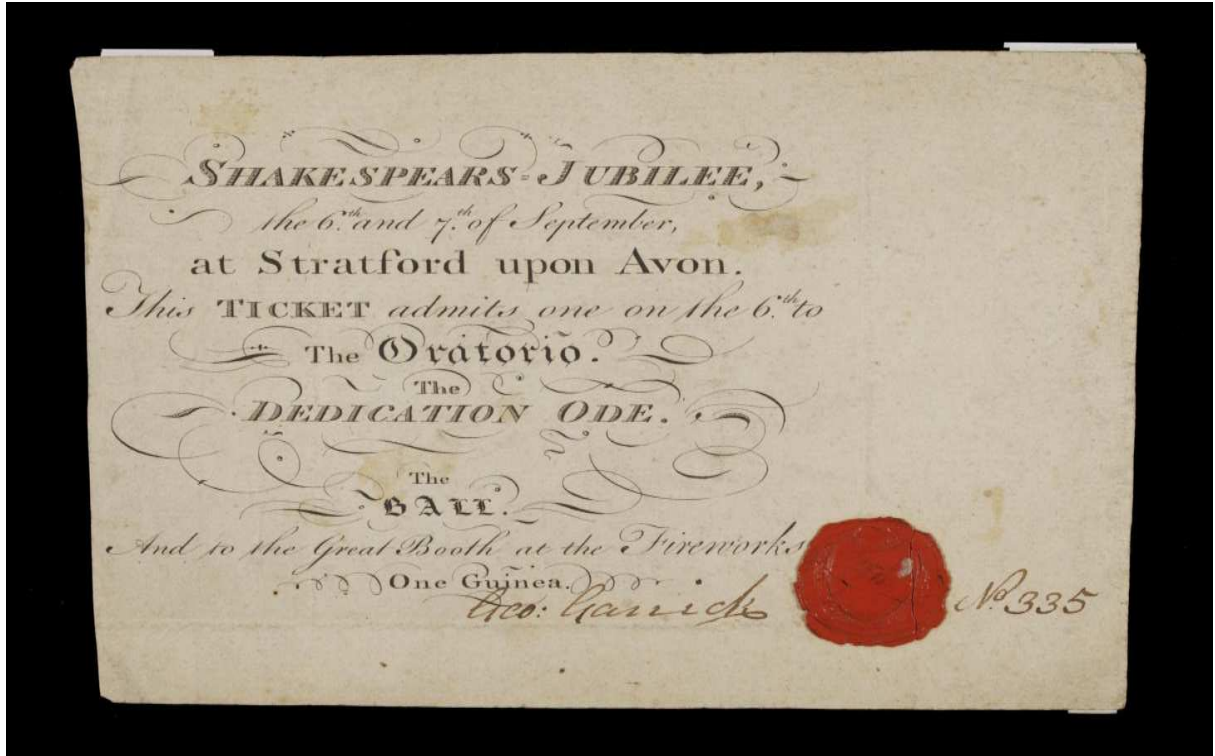 SHAKESPEARS=JUBILEE,
the 6.th and 7.th of September,
at Stratford upon Avon.
This TICKET admits one on the 6.th to
The Oratorio.
The
DEDICATION ODE.
The
BALL.
And to the Great Booth at the Fireworks
One Guinea.
Geo: Garrick
No 335